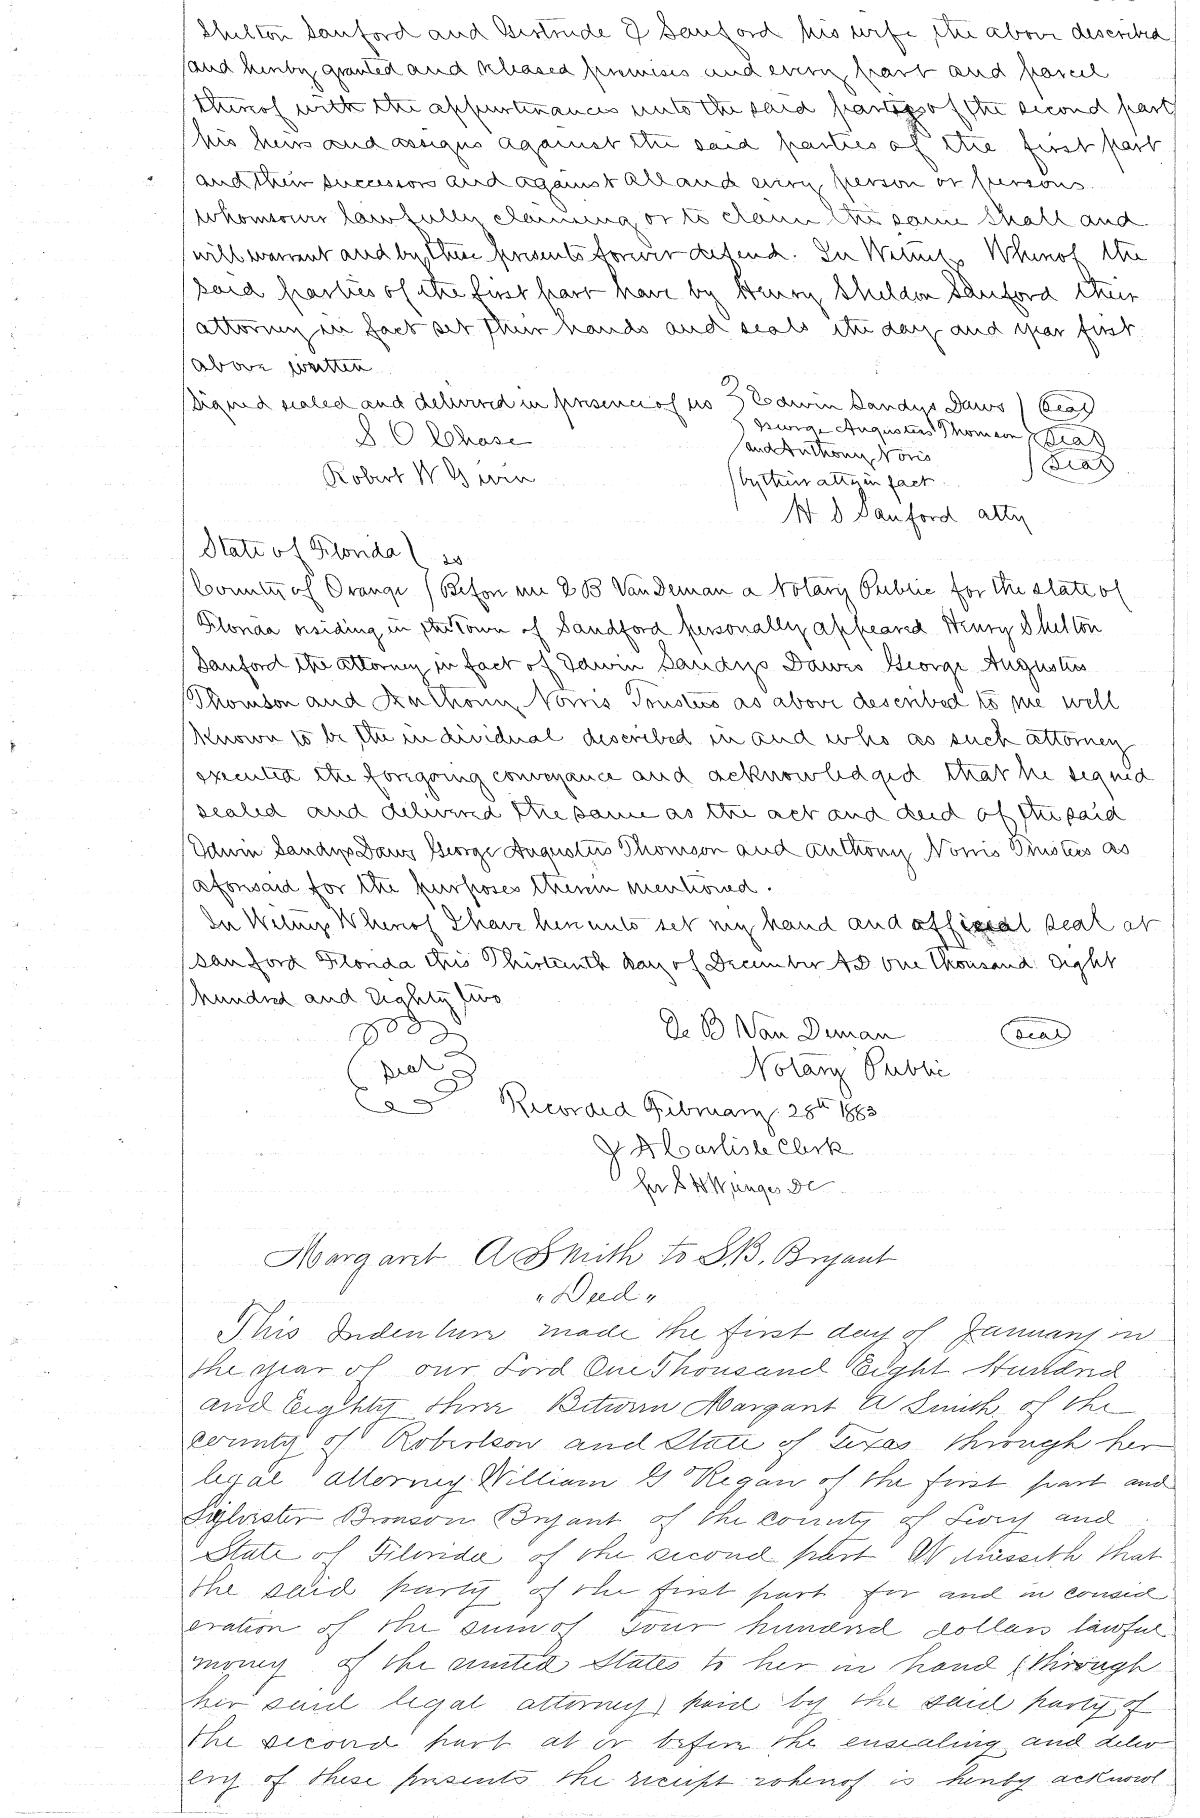 Shelton Sanford and Gertrude E Sanford his wife, the above described
and hereby granted and released premises and every part and parcel
thereof with the appurtenances unto the said parties of the second part
his heirs and assigns against the said parties of the first part
and their successors and against all and every person or persons
whomsoever lawfully claiming or to claim the same shall and
will warrant and by these presents forever defend. In Witness Whereof the
said parties of the first part have by Henry Sheldon Sanford their
attorney in fact set their hands and seals the day and year first
above written
Signed sealed and delivered in presence of us } Edwin Sandys Daws (Seal)
S O Chase George Augustus Thomson (Seal)
and Anthony Noris (Seal)
Robert W Givin by their atty in fact
H S Sanford atty
State of Florida ( ss
County of Orange ( Before me D B Van Deman a Notary Public for the state of
Florida residing in the Town of Sandford personally appeared Henry Shelton
Sanford the attorney in fact of Edwin Sandys Dawes George Augustus
Thomson and Anthony Norris Trustees as above described to me well
known to be the individual described in and who as such attorney
executed the foregoing conveyance and acknowledged that he signed
sealed and delivered the same as the act and deed of the said
Edwin Sandys Daws George Augustus Thomson and Anthony Norris Trustees as
aforesaid for the purposes therein mentioned.
In Witness Whereof I have hereunto set my hand and official seal at
Sanford Florida this Thirteenth day of December AD One thousand Eight
hundred and Eighty two
De B Van Deman (Seal)
Seal
Notary Public
Recorded February 28th 1883
J A Carlisle Clerk
per S H DC
Margaret A Smith to S.B. Bryant
"Deed"
This Indenture made the first day of January in
the year of our Lord One Thousand Eight Hundred
and Eighty three Between Margaret A Smith of the
county of Robertson and State of Texas through her
legal attorney William G Regan of the first part and
Sylvester Bronson Bryant of the county of Levy and
State of Florida of the second part Witnesseth that
the said party of the first part for and in consid
eration of the sum of Four hundred dollars lawful
money of the united States to her in hand (through
her said legal attorney) paid by the said party of
the second part at or before the ensealing and deliv
ery of these presents the receipt whereof is hereby acknowl